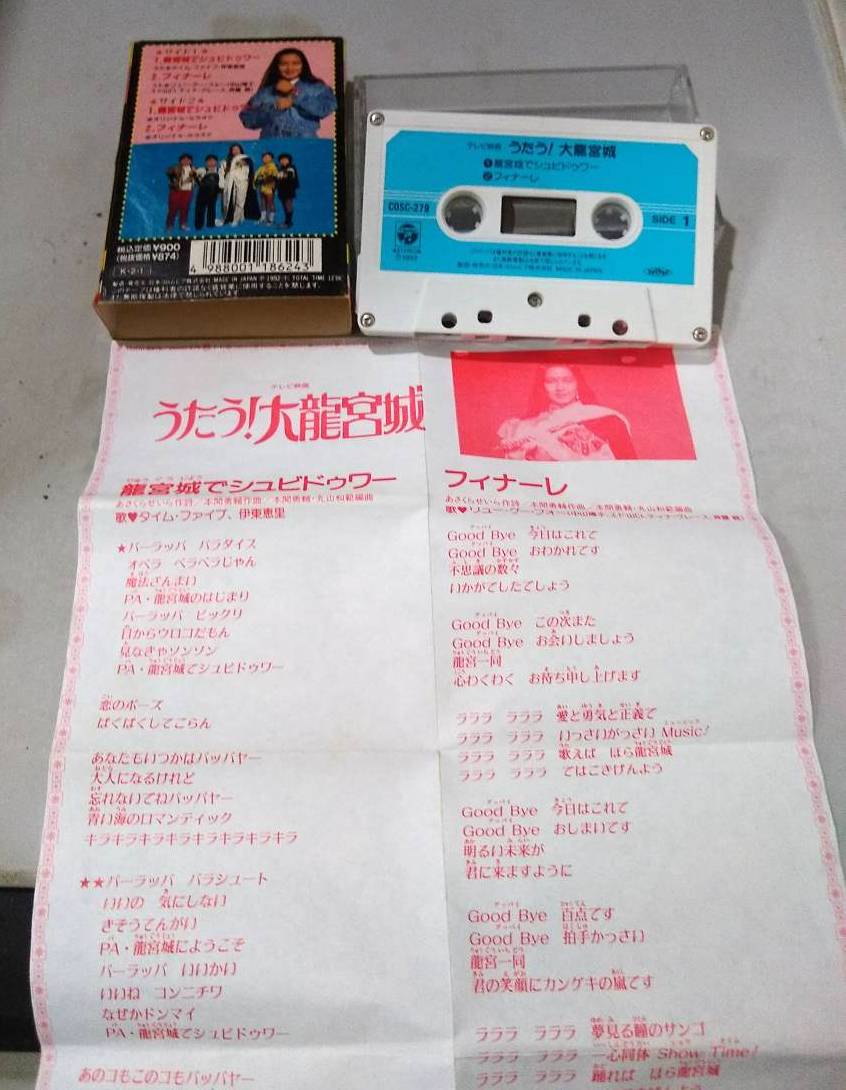 ★サイド1★
1.龍宮城でシュビドゥワー
2.フィナーレ
★サイド2★
1.龍宮城でシュビドゥワー
★オリジナル・カラオケ
2.フィナーレ
★オリジナル・カラオケ
税込定価¥900
(税抜価格¥874)
K-2-1
4 988001 186243
テレビ映画 うたう!大龍宮城
❶龍宮城でシュビドゥワー
❷フィナーレ
COSC-279
SIDE 1
COLUMBIA
MADE IN JAPAN
テレビ映画
うたう!大龍宮城
龍宮城でシュビドゥワー
あさくらせいら作詩/本間勇輔作曲/本間勇輔・丸山和範編曲
歌♥タイム・ファイブ、伊東恵里
★パーラッパ パラダイス
オペラ ペラペラじゃん
魔法ざんまい
PA・龍宮城のはじまり
パーラッパ ビックリ
目からウロコだもん
見なきゃソンソン
PA・龍宮城でシュビドゥワー
恋のポーズ
ぱくぱくしてごらん
あなたもいつかはパッパヤー
大人になるけれど
忘れないでねパッパヤー
青い海のロマンティック
キラキラキラキラキラキラキラキラ
★★パーラッパ パラシュート
いいの 気にしない
きそうてんがい
PA・龍宮城にようこそ
パーラッパ いいかい
いいね コンニチワ
なぜかドンマイ
PA・龍宮城でシュビドゥワー
あのコもこのコもパッパヤー
フィナーレ
あさくらせいら作詩/本間勇輔作曲/本間勇輔・丸山和範編曲
Good Bye 今日はこれで
Good Bye おわかれです
不思議の数々
いかがでしたでしょう
Good Bye この次また
Good Bye お会いしましょう
龍宮一同
心わくわく お待ち申し上げます
ラララ ラララ 愛と勇気と正義で
ラララ ラララ いっさいがっさい Music!
ラララ ラララ 歌えば ほら龍宮城
ラララ ラララ ではごきげんよう
Good Bye 今日はこれで
Good Bye おしまいです
明るい未来が
君に来ますように
Good Bye 百点です
Good Bye 拍手かっさい
龍宮一同
君の笑顔にカンゲキの嵐です
ラララ ラララ 夢見る瞳のサンゴ
ラララ ラララ 一心同体 Show Time!
ラララ ラララ 踊れば ほら龍宮城